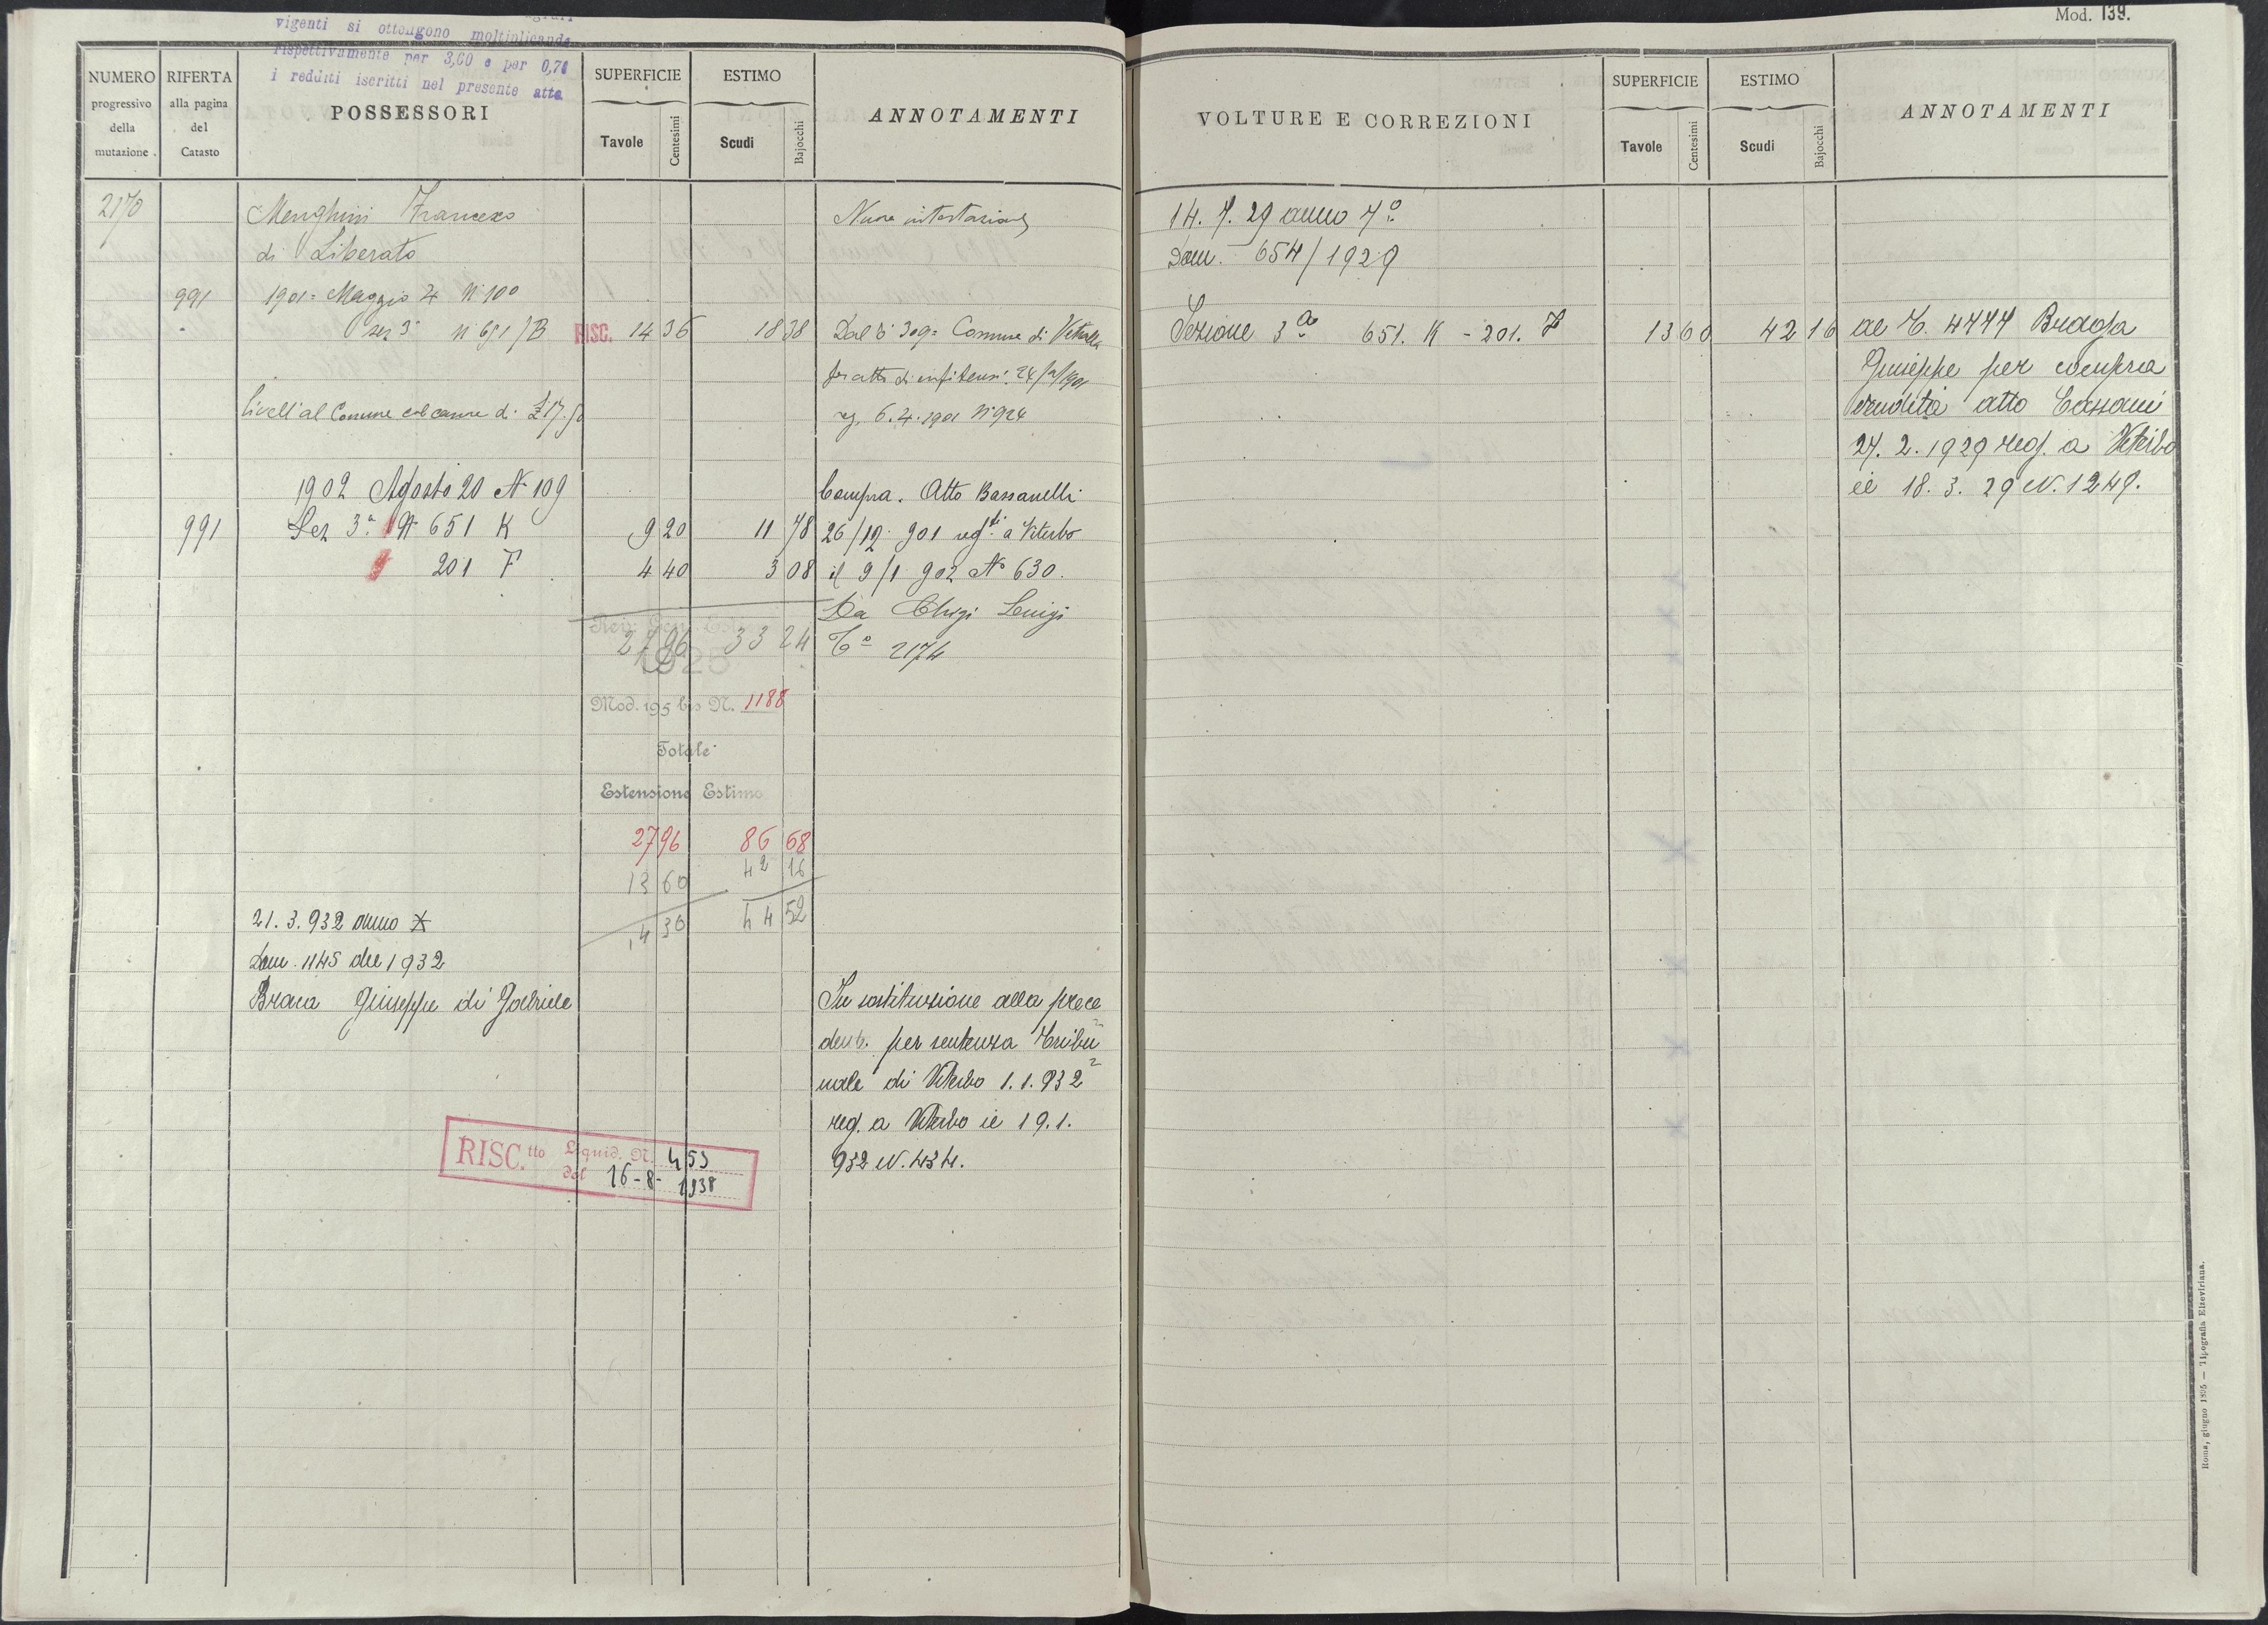 Mod. 139.
vigenti si ottengono moltiplicando
rispettivamente per 3,60 e per 0,70
i redditi iscritti nel presente atto
NUMERO
progressivo
della
mutazione
RIFERTA
alla pagina
del
Catasto
POSSESSORI
SUPERFICIE
Tavole
Centesimi
ESTIMO
Scudi
Bajocchi
ANNOTAMENTI
2170 Menghini Francesco Nuova intestazione
di Liberato
991 1901 = Maggio 4 N 100
Sez 3ª n 651/B RISC. 14 36 18 38 Dal Comune di Vetralla
per atto di enfiteusi 24/2/1901
Livell. al Comune col canone di £ 17.50 reg. 6.4.1901 N 924
1902 Agosto 20 N 109 Compra. Atto Bassanelli
991 Sez 3ª N 651 K 9 20 11 78 26/12 901 regto a Viterbo
201 F 4 40 3 08 il 9/1 902 N 630.
Da Chigi Luigi
Rev. Gen. Est.
27 96 33 24 Cº 2174
1925
Mod. 195 bis N. 1188
Totale
Estensione Estimo
27 96 86 68
13 60 42 16
14 36 44 52
21.3.932 anno X
Dom. 1145 del 1932
Braca Giuseppe di Gabriele
In sostituzione alla prece
dente per sentenza Tribu
nale di Viterbo 1.1.932
reg. a Viterbo il 19.1.
932 N. 434.
RISC.tto Liquid. N. 453
del 16-8-1938
VOLTURE E CORREZIONI
SUPERFICIE
Tavole
Centesimi
ESTIMO
Scudi
Bajocchi
ANNOTAMENTI
14.7.29 anno 7º
Dom. 654/1929
Sezione 3ª 651. K - 201. F 13 60 42 16 al C. 4777 Braga
Giuseppe per compra
vendita atto Cassani
27.2.1929 reg. a Viterbo
il 18.3.29 N. 1249.
Roma, giugno 1895 — Tipografia Elzeviriana.